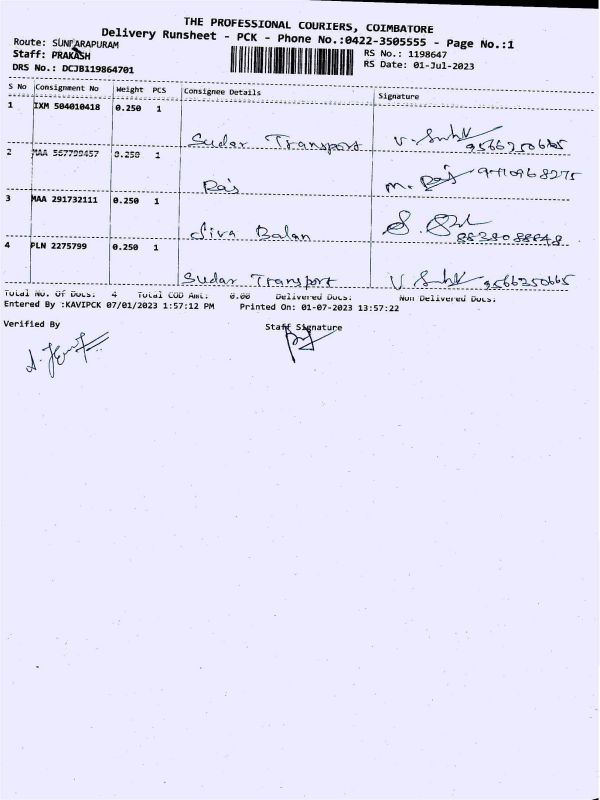 THE PROFESSIONAL COURIERS, COIMBATORE
Delivery Runsheet - PCK - Phone No.:0422-3505555 - Page No.:1
Route: SUNDARAPURAM
Staff: PRAKASH
DRS No.: DCJB119864701
RS No.: 1198647
RS Date: 01-Jul-2023
S No Consignment No Weight PCS Consignee Details Signature
1 IXM 504010418 0.250 1
Sudar Transport 9566250665
2 MAA 567799457 0.250 1
Raj M. Raj
3 MAA 291732111 0.250 1
Siva Balan
4 PLN 2275799 0.250 1
Sudar Transport 9566250665
Total No. Of Docs: 4 Total COD Amt: 0.00 Delivered Docs: Non Delivered Docs:
Entered By :KAVIPCK 07/01/2023 1:57:12 PM Printed On: 01-07-2023 13:57:22
Verified By Staff Signature